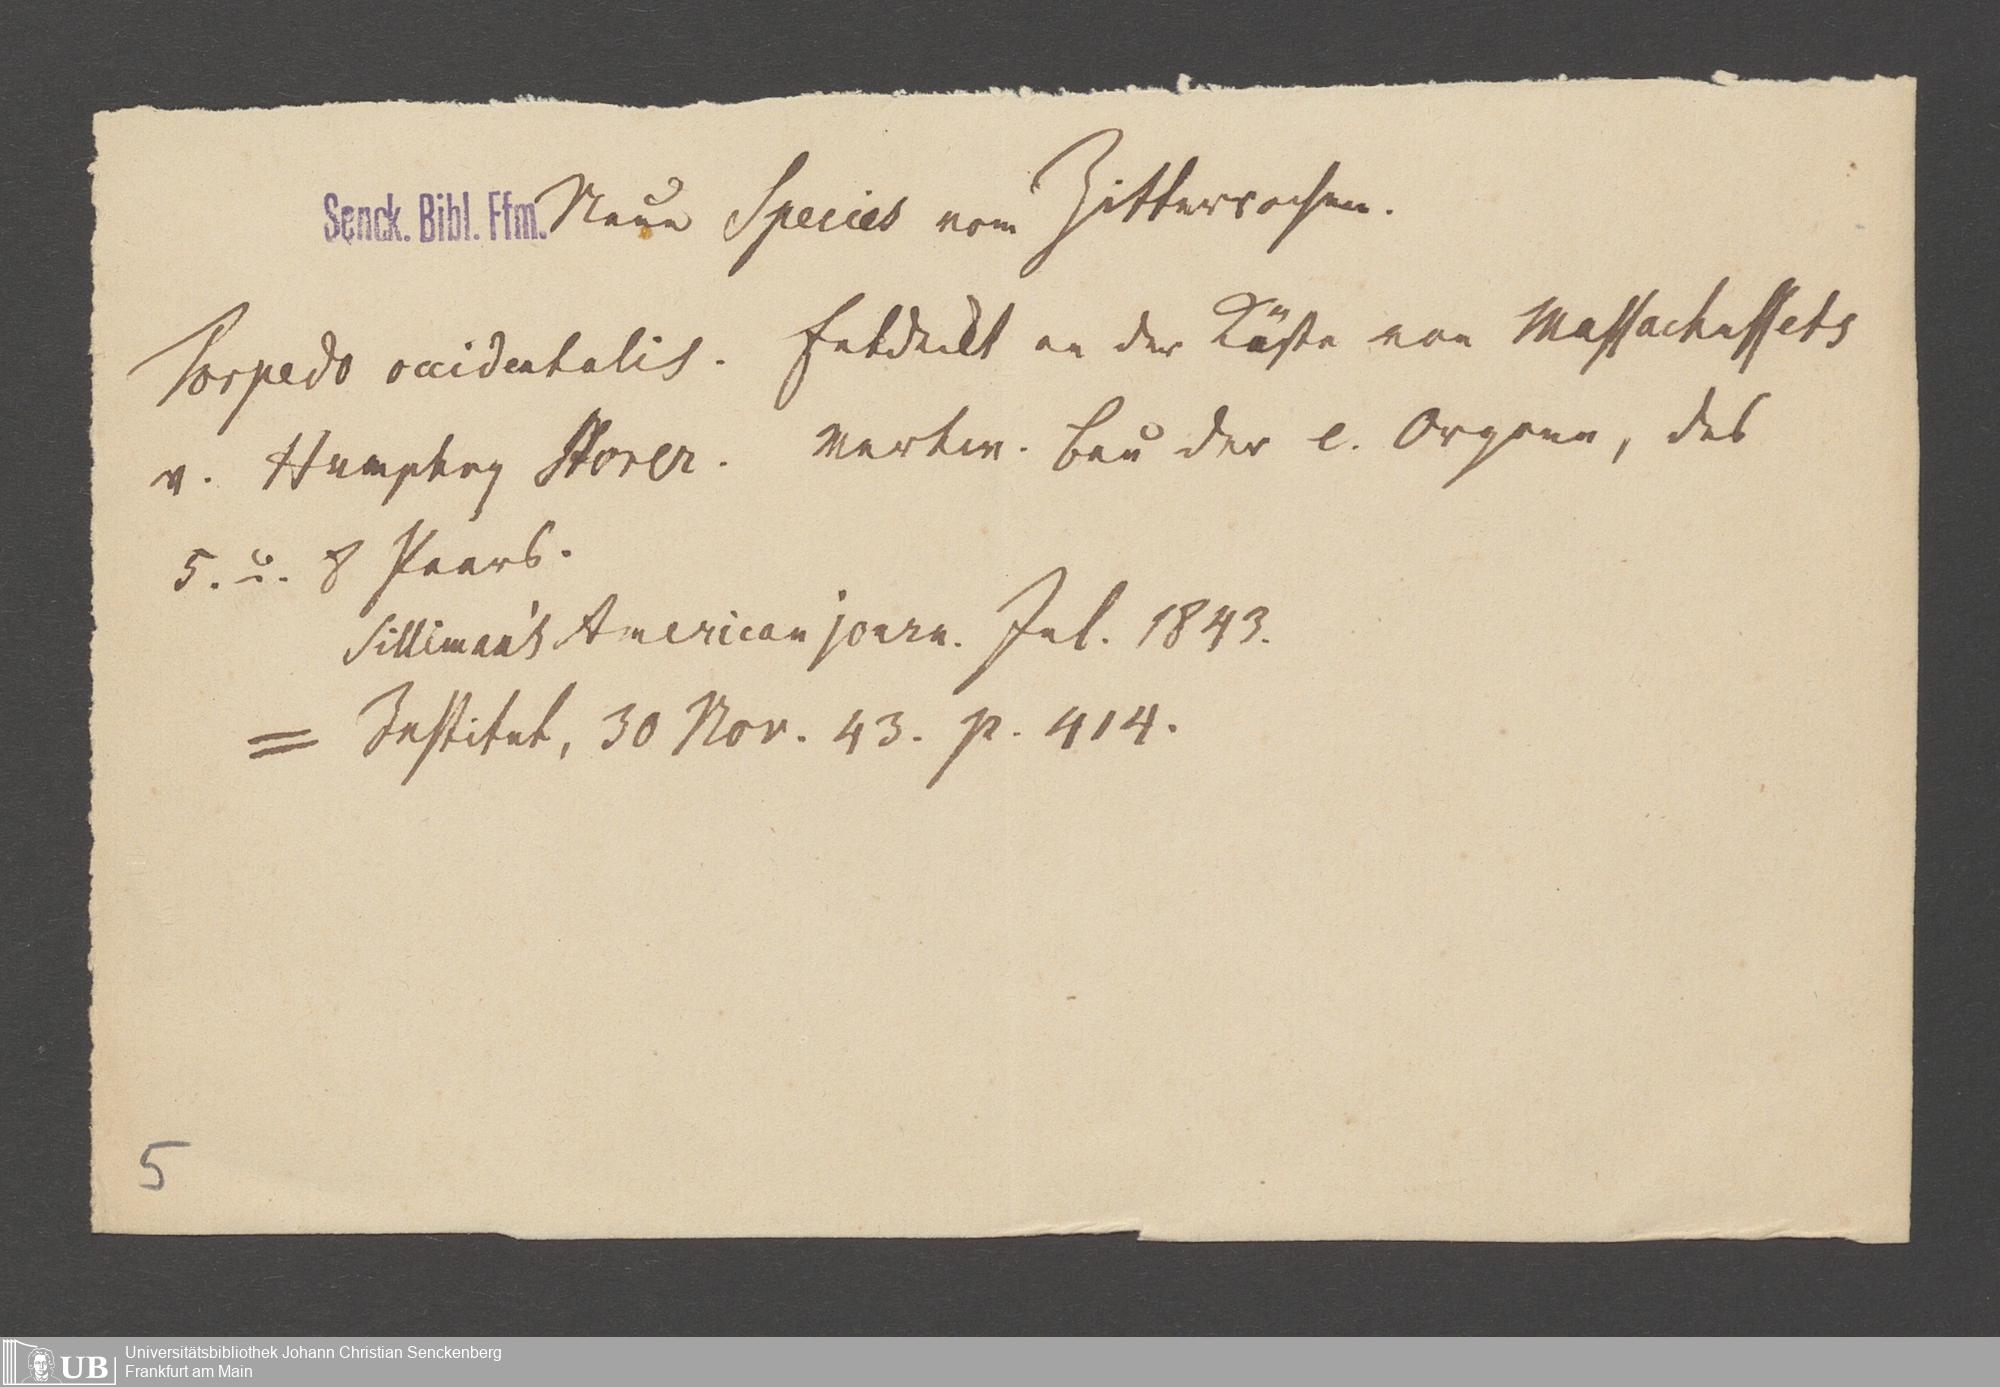 Senck. Bibl. Ffm. Neue Species vom Zitterrochen.
Torpedo occidentalis. Entdeckt an der Küste von Massachussets
v. Humphry Storer. Merkw. Bau der e. Organe, des
5. u. 8 Paars.
Silliman's American journ. Jul. 1843.
= Institut, 30 Nov. 43. p. 414.
5
UB Universitätsbibliothek Johann Christian Senckenberg
Frankfurt am Main